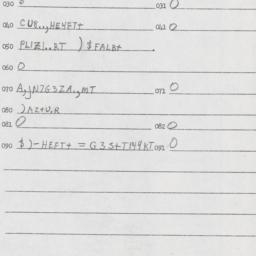 030 0 031 0
040 CU8..,HEYET+ 041 0
050 PLIZI..RT )$FALB+.
060 0
070 A,jN7G3ZA.,MT 071 0
080 )AZ+U,R
081 0 082 0
090 $)-HEFT+ = G3S+T149KT 091 0